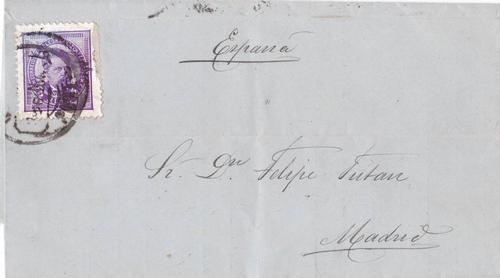 España
Sr. Dn Felipe Tutau
Madrid